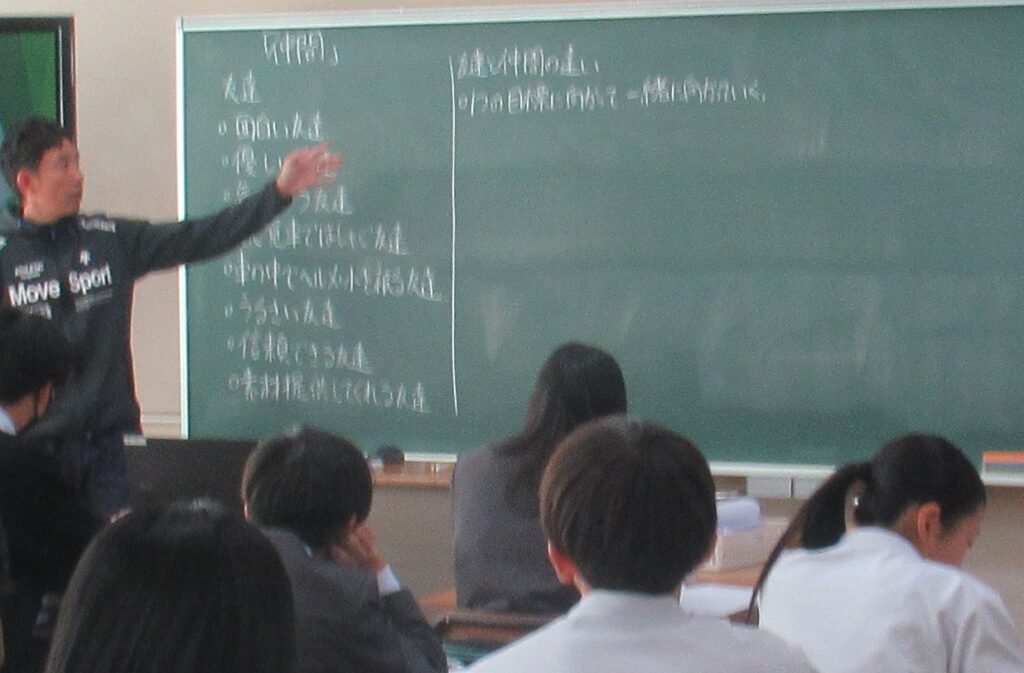 「仲間」
友達
○面白い友達
○優しい 達
う友達
見本ではしゃぐ友達
車の中でヘルメットを被る友達
○うるさい友達
○信頼できる友達
○素材提供してくれる友達
友達と仲間の違い
○1つの目標に向かって一緒に向かっていく。
Move Sport